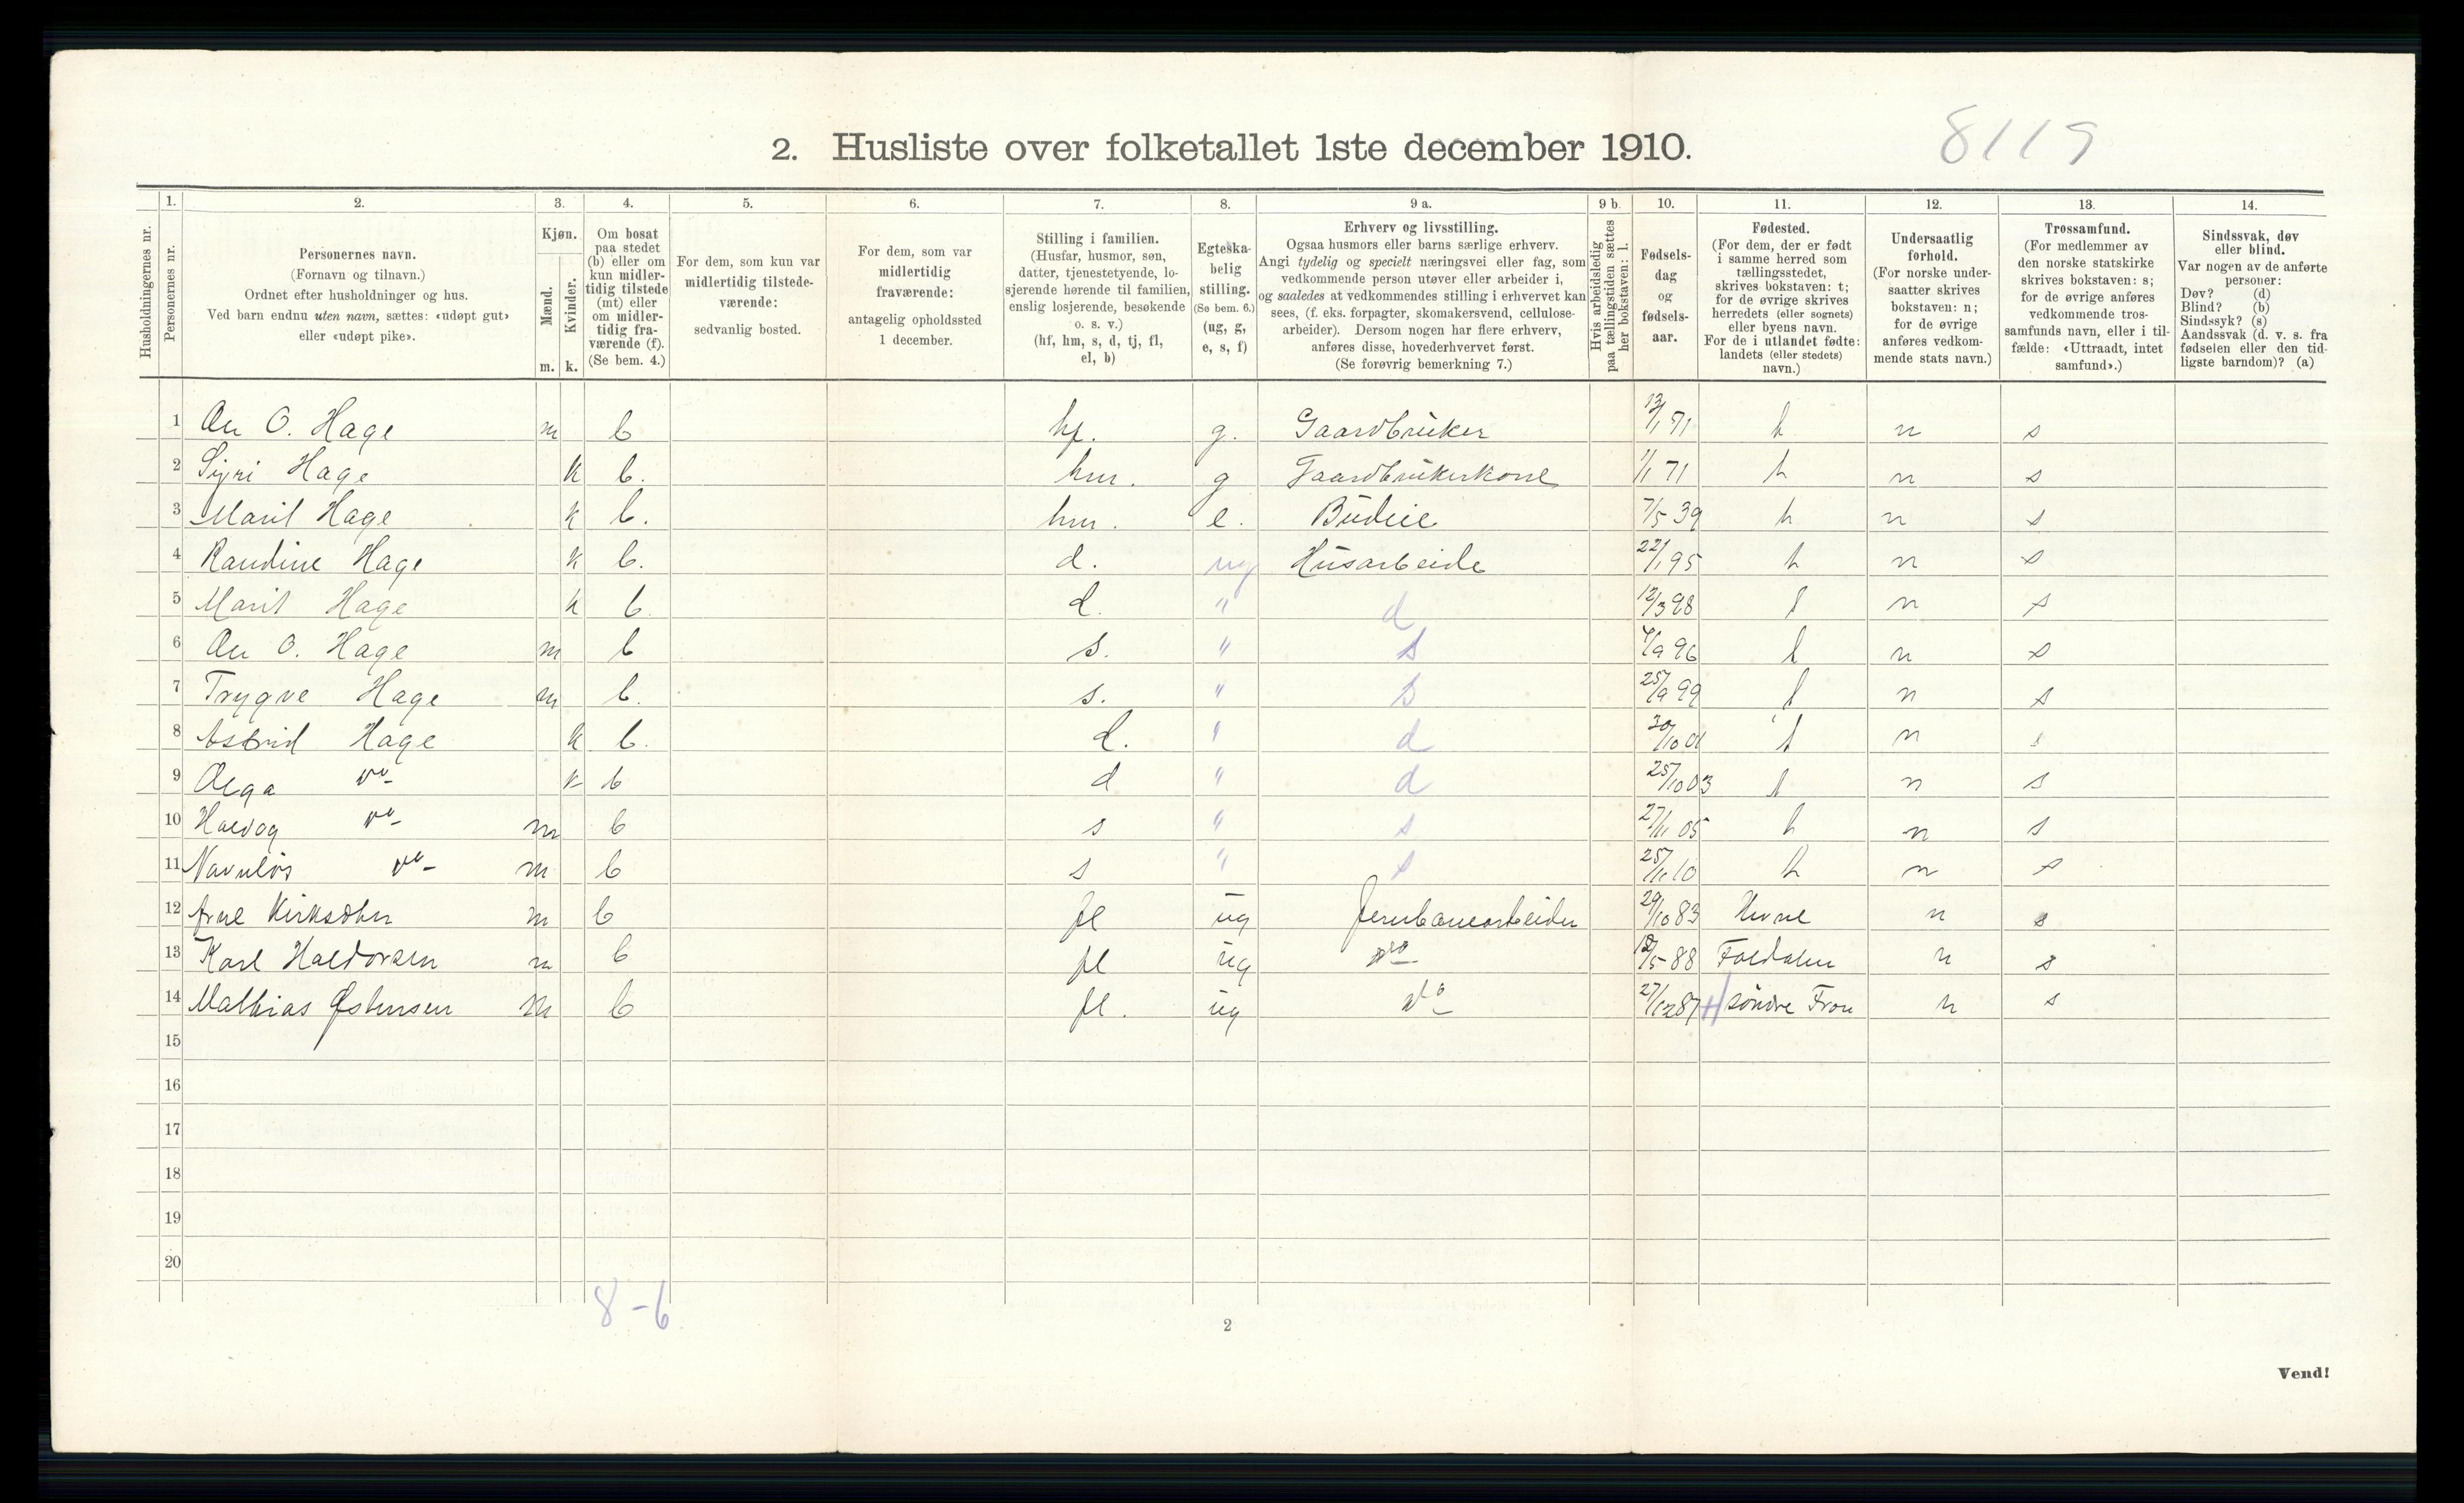 8119
2. Husliste over folketallet 1ste december 1910.
Husholdningernes nr.
1. Personernes nr.
2. Personernes navn.
(Fornavn og tilnavn.)
Ordnet efter husholdninger og hus.
Ved barn endnu uten navn, sættes: «udøpt gut»
eller «udøpt pike».
3. Kjøn.
Mænd. m.
Kvinder. k.
4. Om bosat
paa stedet
(b) eller om
kun midler-
tidig tilstede
(mt) eller
om midler-
tidig fra-
værende (f).
(Se bem. 4.)
5. For dem, som kun var
midlertidig tilstede-
værende:
sedvanlig bosted.
6. For dem, som var
midlertidig
fraværende:
antagelig opholdssted
1 december.
7. Stilling i familien.
(Husfar, husmor, søn,
datter, tjenestetyende, lo-
sjerende hørende til familien,
enslig losjerende, besøkende
o. s. v.)
(hf, hm, s, d, tj, fl,
el, b)
8. Egteska-
belig
stilling.
(Se bem. 6.)
(ug, g,
e, s, f)
9 a. Erhverv og livsstilling.
Ogsaa husmors eller barns særlige erhverv.
Angi tydelig og specielt næringsvei eller fag, som
vedkommende person utøver eller arbeider i,
og saaledes at vedkommendes stilling i erhvervet kan
sees, (f. eks. forpagter, skomakersvend, cellulose-
arbeider). Dersom nogen har flere erhverv,
anføres disse, hovederhvervet først.
(Se forøvrig bemerkning 7.)
9 b. Hvis arbeidsledig
paa tællingstiden sættes
her bokstaven: l.
10. Fødsels-
dag
og
fødsels-
aar.
11. Fødested.
(For dem, der er født
i samme herred som
tællingsstedet,
skrives bokstaven: t;
for de øvrige skrives
herredets (eller sognets)
eller byens navn.
For de i utlandet fødte:
landets (eller stedets)
navn.)
12. Undersaatlig
forhold.
(For norske under-
saatter skrives
bokstaven: n;
for de øvrige
anføres vedkom-
mende stats navn.)
13. Trossamfund.
(For medlemmer av
den norske statskirke
skrives bokstaven: s;
for de øvrige anføres
vedkommende tros-
samfunds navn, eller i til-
fælde: «Uttraadt, intet
samfund».)
14. Sindssvak, døv
eller blind.
Var nogen av de anførte
personer:
Døv? (d)
Blind? (b)
Sindssyk? (s)
Aandssvak (d. v. s. fra
fødselen eller den tid-
ligste barndom)? (a)
1 O. Hage m b hf. g. Gaardbruker 13/1 71 t n s
2 Hage k b. hm. g Gaardbrukerkone 1/1 71 t n s
3 Marit Hage k b. hm. e. Budeie 7/5 39 t n s
4 Randine Hage k b. d. ug Husarbeide 22/1 95 t n s
5 Marit Hage k b. d. " d 12/3 98 t n s
6 O. Hage m b s. " s 96 t n s
7 Trygve Hage m b. s. " s 25/9 99 t n s
8 Astrid Hage k b. d. " d 30/10 01 t n s
9 Olga do k b d " d 25/10 03 t n s
10 do m b s " s 27/11 05 t n s
11 Navnløs do m b s " s 25/11 10 t n s
12 Arne m b fl ug Jernbanearbeider 29/10 83 n s
13 Karl Haldorsen m b fl ug do 88 Foldalen n s
14 Mathias Østensen m b fl. ug do 27/12 87 søndre Fron n s
15
16
17
18
19
20
8-6
2
Vend!